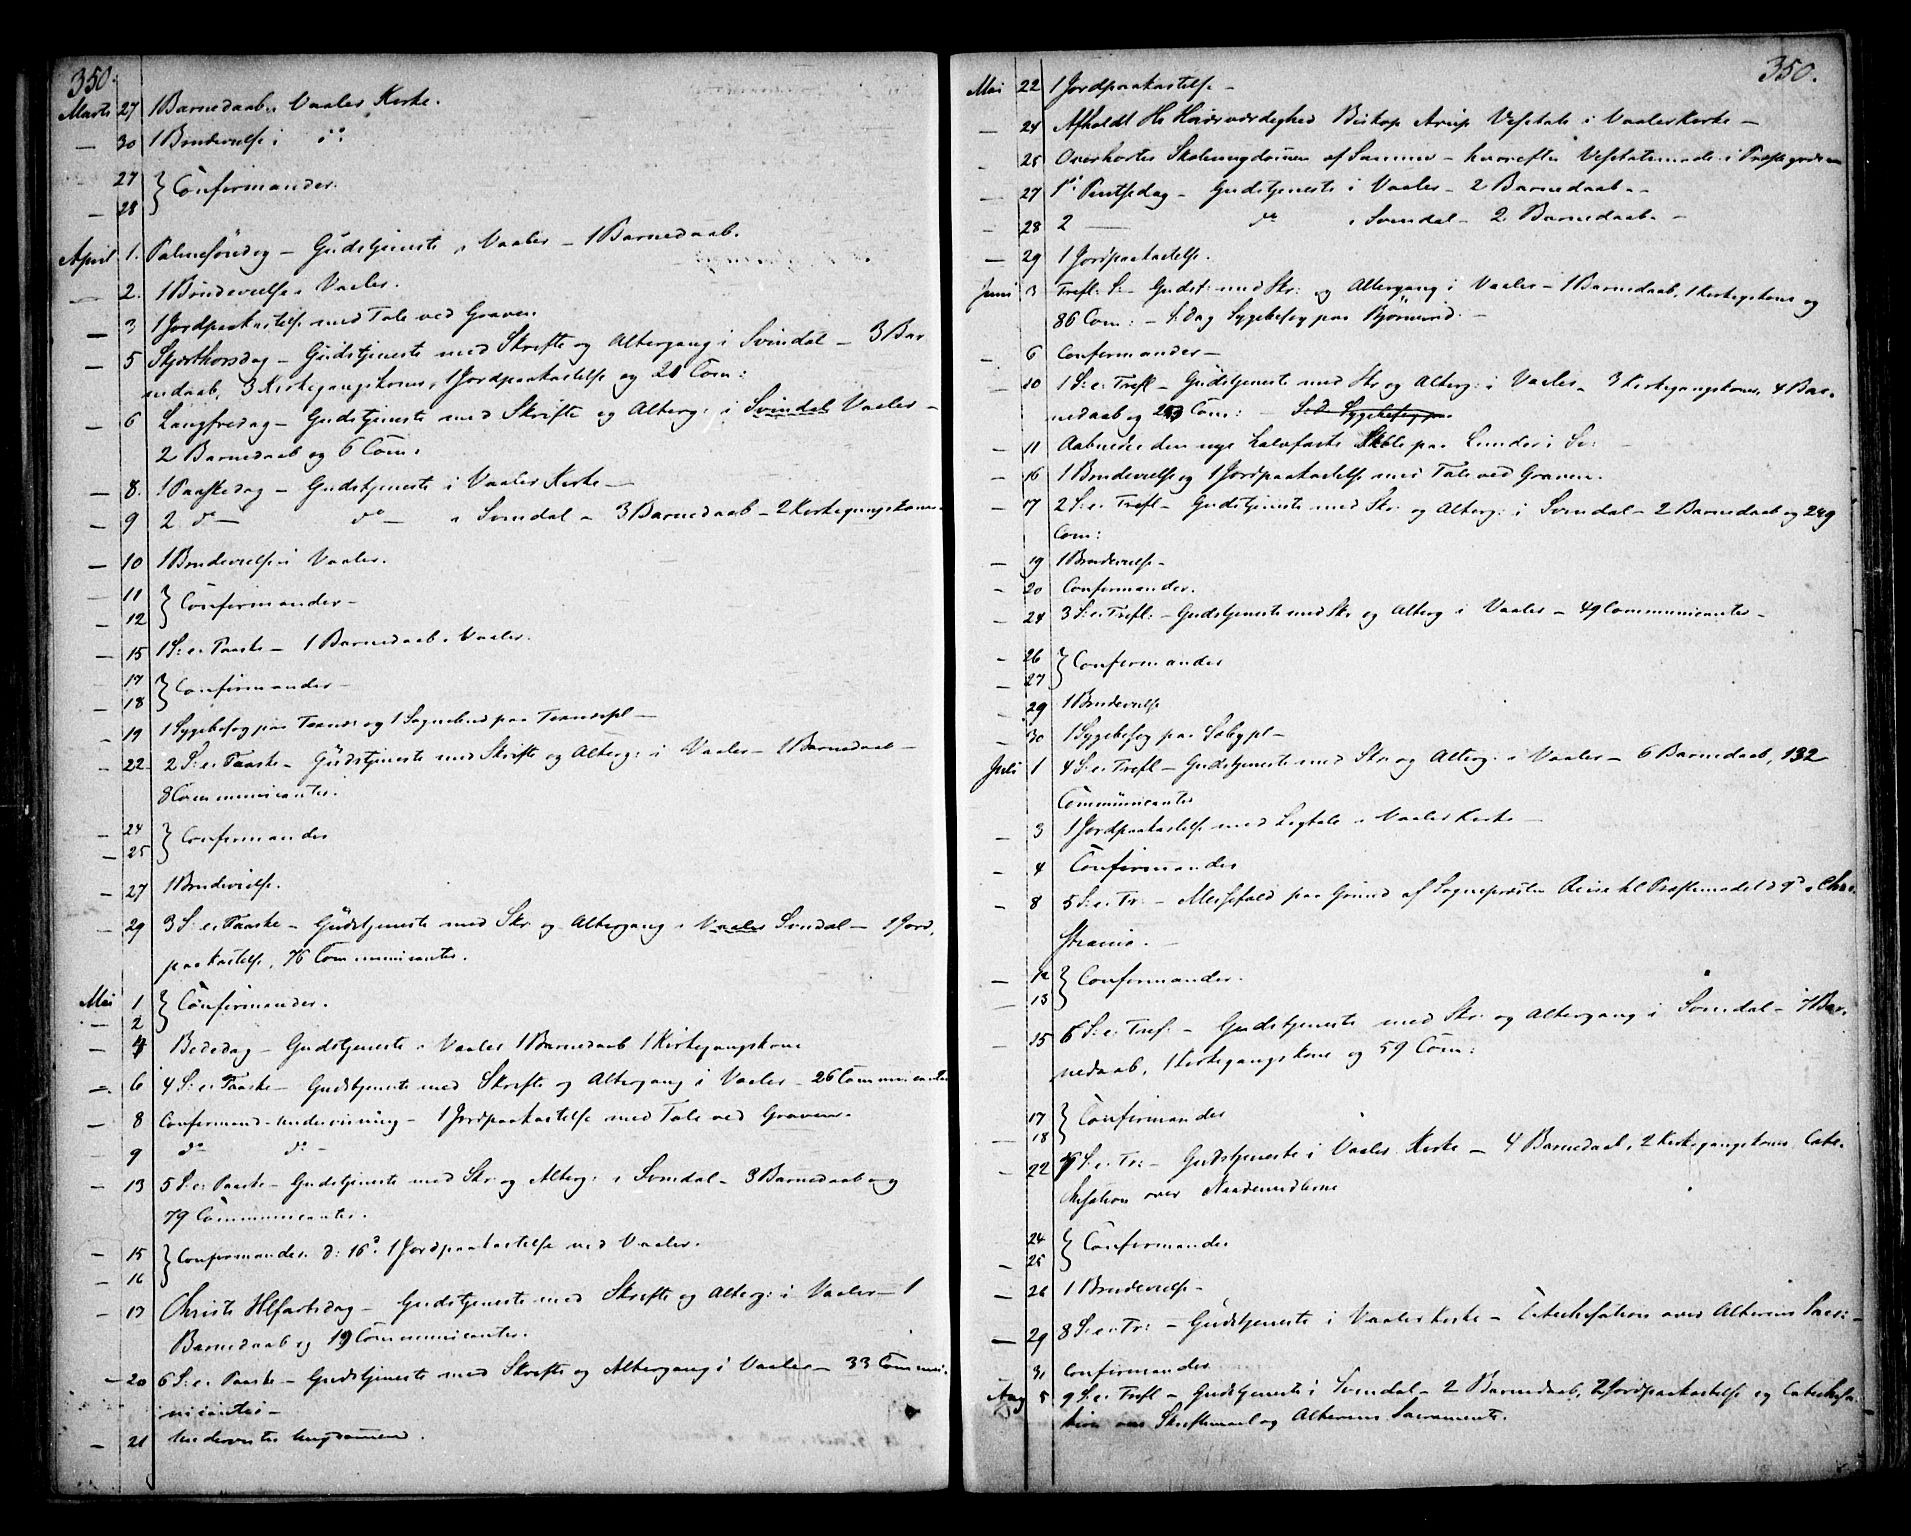 350.
Marts 27 1 Barnedaab i Vaaler Kirke.
— 30 1 Brudevielse i do
27 } Confirmander.
— 28
April 1. Palmesöndag – Gudstjeneste i Vaaler – 1 Barnedaab.
— 2. 1 Brudevielse i Vaaler.
— 3 1 Jordpaakastelse med Tale ved Graven
— 5 Skjærthorsdag – Gudstjeneste med Skrifte og Altergang i Svindal – 3 Bar
nedaab, 3 Kirkegangskoner, 1 Jordpaakastelse og 20 Com:
— 6 Langfredag – Gudstjeneste med Skrifte og Alterg: i Svindal Vaaler –
2 Barnedaab og 6 Com:
— 8. 1 Paaskedag – Gudstjeneste i Vaaler Kirke –
— 9 2 do – do – i Svindal – 3 Barnedaab – 2 Kirkegangskoner
— 10 1 Brudevielse i Vaaler.
— 11 } Confirmander –
— 12
— 15 1 S: e: Paaske – 1 Barnedaab i Vaaler.
— 17 } Confirmander –
— 18
— 19 1 Sygebesøg paa og 1 Sognebud paa
— 22 2 S: e: Paaske – Gudstjeneste med Skrifte og Alterg: i Vaaler – 1 Barnedaab –
8 Communicanter.
— 24 } Confirmander
— 25
— 27 1 Brudevielse.
— 29 3 S: e: Paaske – Gudstjeneste med Skr: og Altergang i Vaaler Svindal – 1 Jord,
paakastelse, 76 Communicanter.
Mai 1 } Confirmander.
— 2
— 4 Bededag – Gudstjeneste i Vaaler 1 Barnedaab 1 Kirkegangskone
— 6 4 S: e: Paaske – Gudstjeneste med Skrifte og Altergang i Vaaler – 26 Communicanter
— 8 Confirmand-undervisning – 1 Jordpaakastelse med Tale ved Graven.
— 9 do do –
— 13 5 S: e: Paaske – Gudstjeneste med Skr: og Alterg: i Svindal – 3 Barnedaab og
79 Communicanter.
— 15 } Confirmander. d: 16d 1 Jordpaakastelse ved Vaaler.
— 16
— 17 Christi Hlfartsdag – Gudstjeneste med Skrifte og Alterg: i Vaaler – 1
Barnedaab og 19 Communicanter.
— 20 6 S: e: Paaske – Gudstjeneste med Skrifte og Altergang i Vaaler – 33 Commu-
nicanter –
— 21 Underviste Ungdommen.
350.
Mai 22 1 Jordpaakastelse –
— 24 Afholdt Hs Høiærværdighed Biskop Arup Visitats i Vaaler Kirke –
— 25 Overhørtes Skoleungdommen af Samme – hvorefter Visitatsmøde i Præstegaarden
— 27 1ste Pintsedag – Gudstjeneste i Vaaler – 2 Barnedaab –
— 28 2 — do i Svindal – 2 Barnedaab –
— 29 1 Jordpaakastelse.
Juni 3 Trefl: S: – Gudst: med Skr: og Altergang i Vaaler – 1 Barnedaab, 1 Kirkegskone og
86 Com: – S: Dag Sygebesøg paa –
— 6 Confirmander –
— 10 1 S: e: Trefl – Gudstjeneste med Skr og Alterg: i Vaaler – 3 Kirkegangskoner, 4 Bar-
nedaab og Com: – S. d. Sygebesøg paa
— 11 Aabnedes den nye halvfaste Skole paa Lunder i Sv:
— 16 1 Brudevielse og 1 Jordpaakastelse med Tale ved Graven.
— 17 2 S: e: Trefl – Gudstjeneste med Skr: og Alterg: i Svindal – 2 Barnedaab og 249
Com:
— 19 1 Brudevielse –
— 20 Confirmander.
— 24 3 S: e: Trefl: – Gudstjeneste med Skr og Alterg i Vaaler – 49 Communicanter –
— 26 } Confirmander
— 27
— 29 1 Brudevielse
— 30 1 Sygebesøg paa
Juli 1 4 S: e: Trefl – Gudstjeneste med Skr: og Alterg: i Vaaler – 6 Barnedaab, 132
Communicanter
— 3 1 Jordpaakastelse med Ligtale i Vaaler Kirke –
— 4 Confirmander
— 8 5 S: e: Tr: – Messefald paa Grund af Sognepræsten Reise til Præstemødet d 9d i Chri-
stiania. –
— 12 } Confirmander.
— 13
— 15 6 S: e: Tref: – Gudstjeneste med Skr: og Altergang i Svindal – 7 Bar-
nedaab, 1 Kirkegangskone og 59 Com:
— 17 } Confirmander
— 18
— 22 7 S: e: Tr: – Gudstjeneste i Vaaler Kirke – 4 Barnedaab, 2 Kirkegangskoner, Cate-
chisation over Naademidlerne
— 24 } Confirmander
— 25
— 26 1 Brudevielse –
— 29 8 S: e: Tr: – Gudstjeneste i Vaaler Kirke – Catechisation over Alterens Sacr: –
31 Confirmander
Aug 5 9 S: e: Trefl – Gudstjeneste i Svindal – 2 Barnedaab, 2 Jordpaakastelse og Catechisa-
tion over Skriftemaal og Alterens Sacramente.